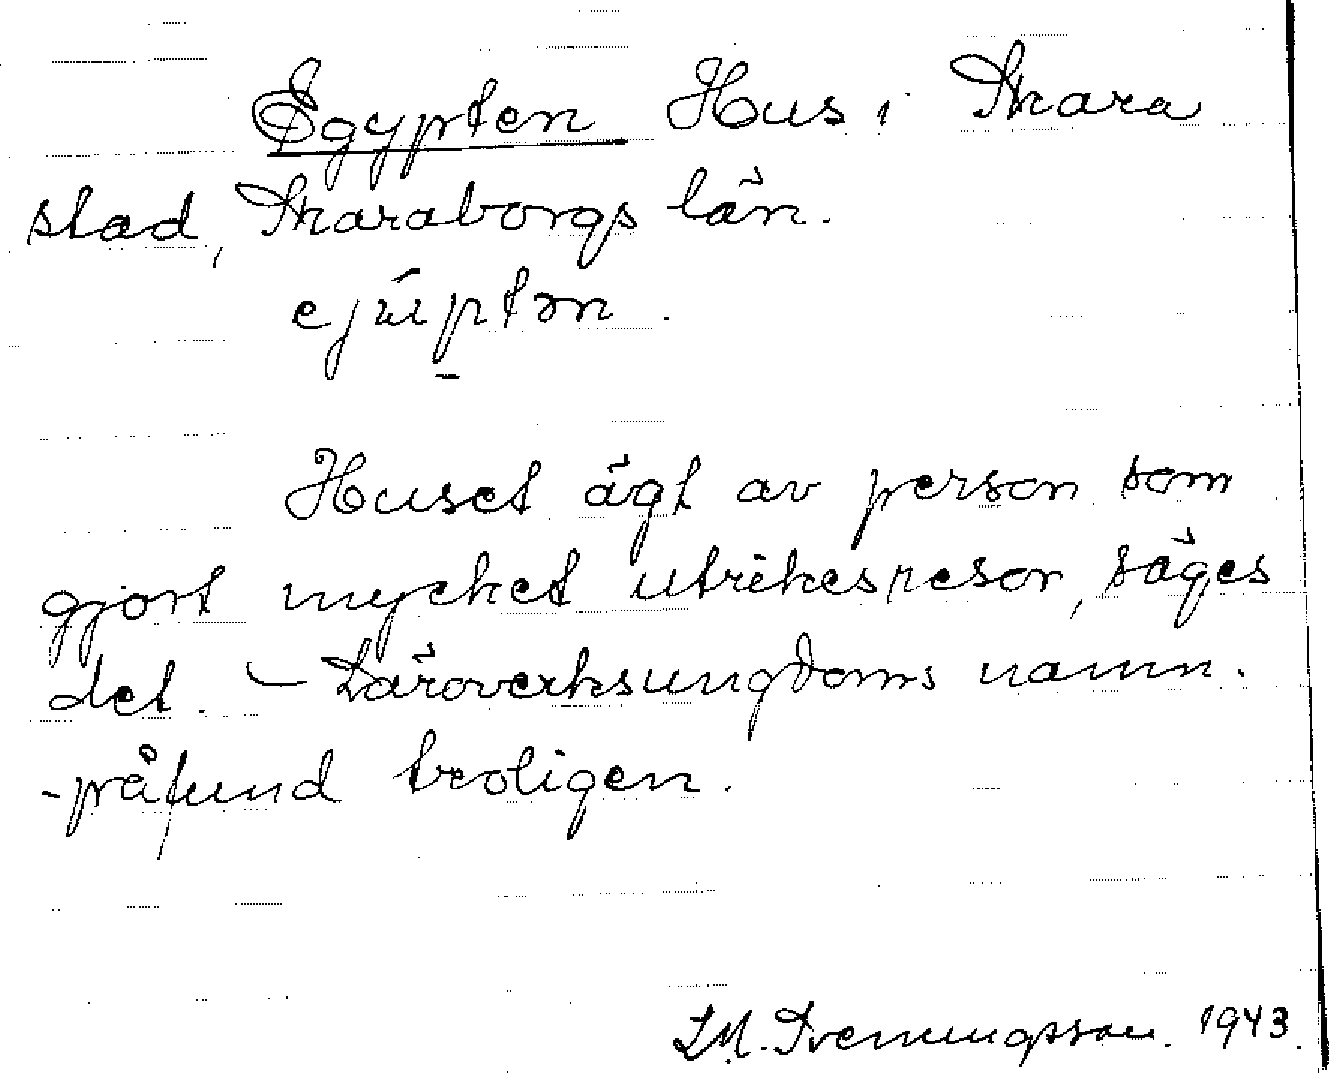 Egypten Hus i Skara
stad, Skaraborgs län.
ejúptən.
Huset ägt av person som
gjort mycket utrikesresor, säges
det. – Läroverksungdoms namn.
-påfund troligen.
I.M. Svenungsson. 1943.